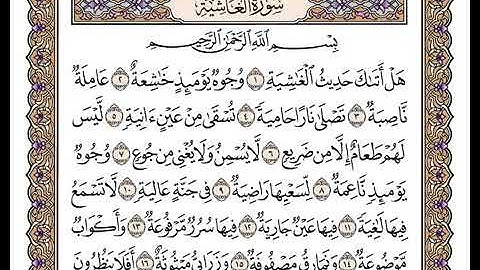 سُورَةُ الغَاشِيَةِ
بِسْمِ ٱللَّهِ ٱلرَّحْمَٰنِ ٱلرَّحِيمِ
هَلْ أَتَىٰكَ حَدِيثُ ٱلْغَٰشِيَةِ ١ وُجُوهٌ يَوْمَئِذٍ خَٰشِعَةٌ ٢ عَامِلَةٌ
نَّاصِبَةٌ ٣ تَصْلَىٰ نَارًا حَامِيَةً ٤ تُسْقَىٰ مِنْ عَيْنٍ ءَانِيَةٍ ٥ لَّيْسَ
لَهُمْ طَعَامٌ إِلَّا مِن ضَرِيعٍ ٦ لَّا يُسْمِنُ وَلَا يُغْنِى مِن جُوعٍ ٧ وُجُوهٌ
يَوْمَئِذٍ نَّاعِمَةٌ ٨ لِّسَعْيِهَا رَاضِيَةٌ ٩ فِى جَنَّةٍ عَالِيَةٍ ١٠ لَّا تَسْمَعُ
فِيهَا لَٰغِيَةً ١١ فِيهَا عَيْنٌ جَارِيَةٌ ١٢ فِيهَا سُرُرٌ مَّرْفُوعَةٌ ١٣ وَأَكْوَابٌ
مَّوْضُوعَةٌ ١٤ وَنَمَارِقُ مَصْفُوفَةٌ ١٥ وَزَرَابِىُّ مَبْثُوثَةٌ ١٦ أَفَلَا يَنظُرُونَ